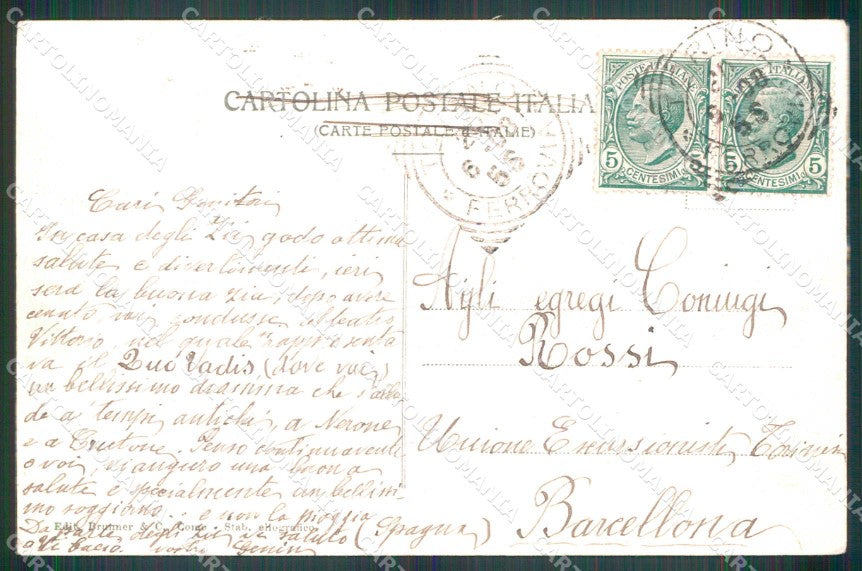 CARTOLINA POSTALE ITALIA
(CARTE POSTALE d'ITALIE)
POSTE ITALIANE
5 5
CENTESIMI
ITALIANE
5
CENTESIMI
TORINO
FERROVIA
Cari Genitori
In casa degli Zii godo ottima
salute e divertimenti, ieri
sera la buona zia, dopo avere
cenato, mi condusse al teatro
Vittorio, nel quale rappresenta
va il Quo Vadis (dove vai)
un bellissimo dramma che s'allu
de a' tempi antichi, a Nerone
e a Penso continuamente
a voi, v'auguro una buona
salute e specialmente un bellissi
mo soggiorno e non la pioggia
Da parte degli zii saluto
vostro
Agli egregi Coniugi
Rossi
Unione Escursionisti Torinesi
Barcellona
(Spagna)
Edit. Brunner & C., Como - Stab. eliografico
CARTOLINOMANIA